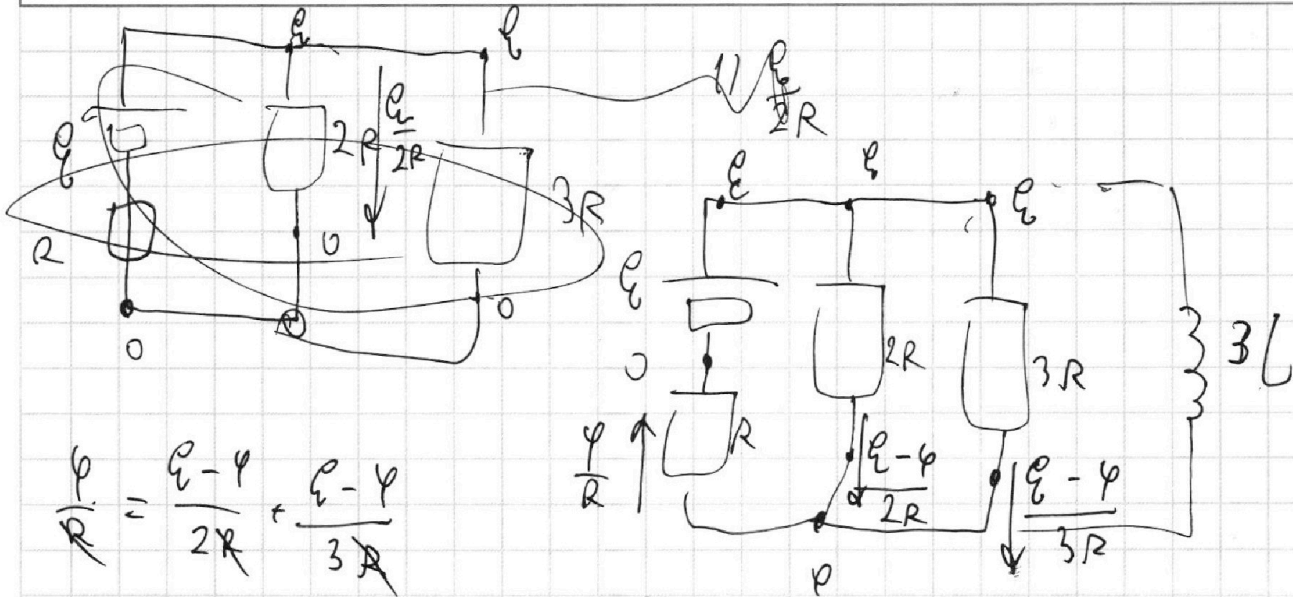 ℰ ℰ
ℰ/2R
ℰ 2R ℰ/2R
3R
R 0
0 0
ℰ ℰ ℰ
ℰ
0 2R 3R 3L
φ/R R
(ℰ-φ)/2R (ℰ-φ)/3R
φ
φ/R = (ℰ-φ)/2R + (ℰ-φ)/3R